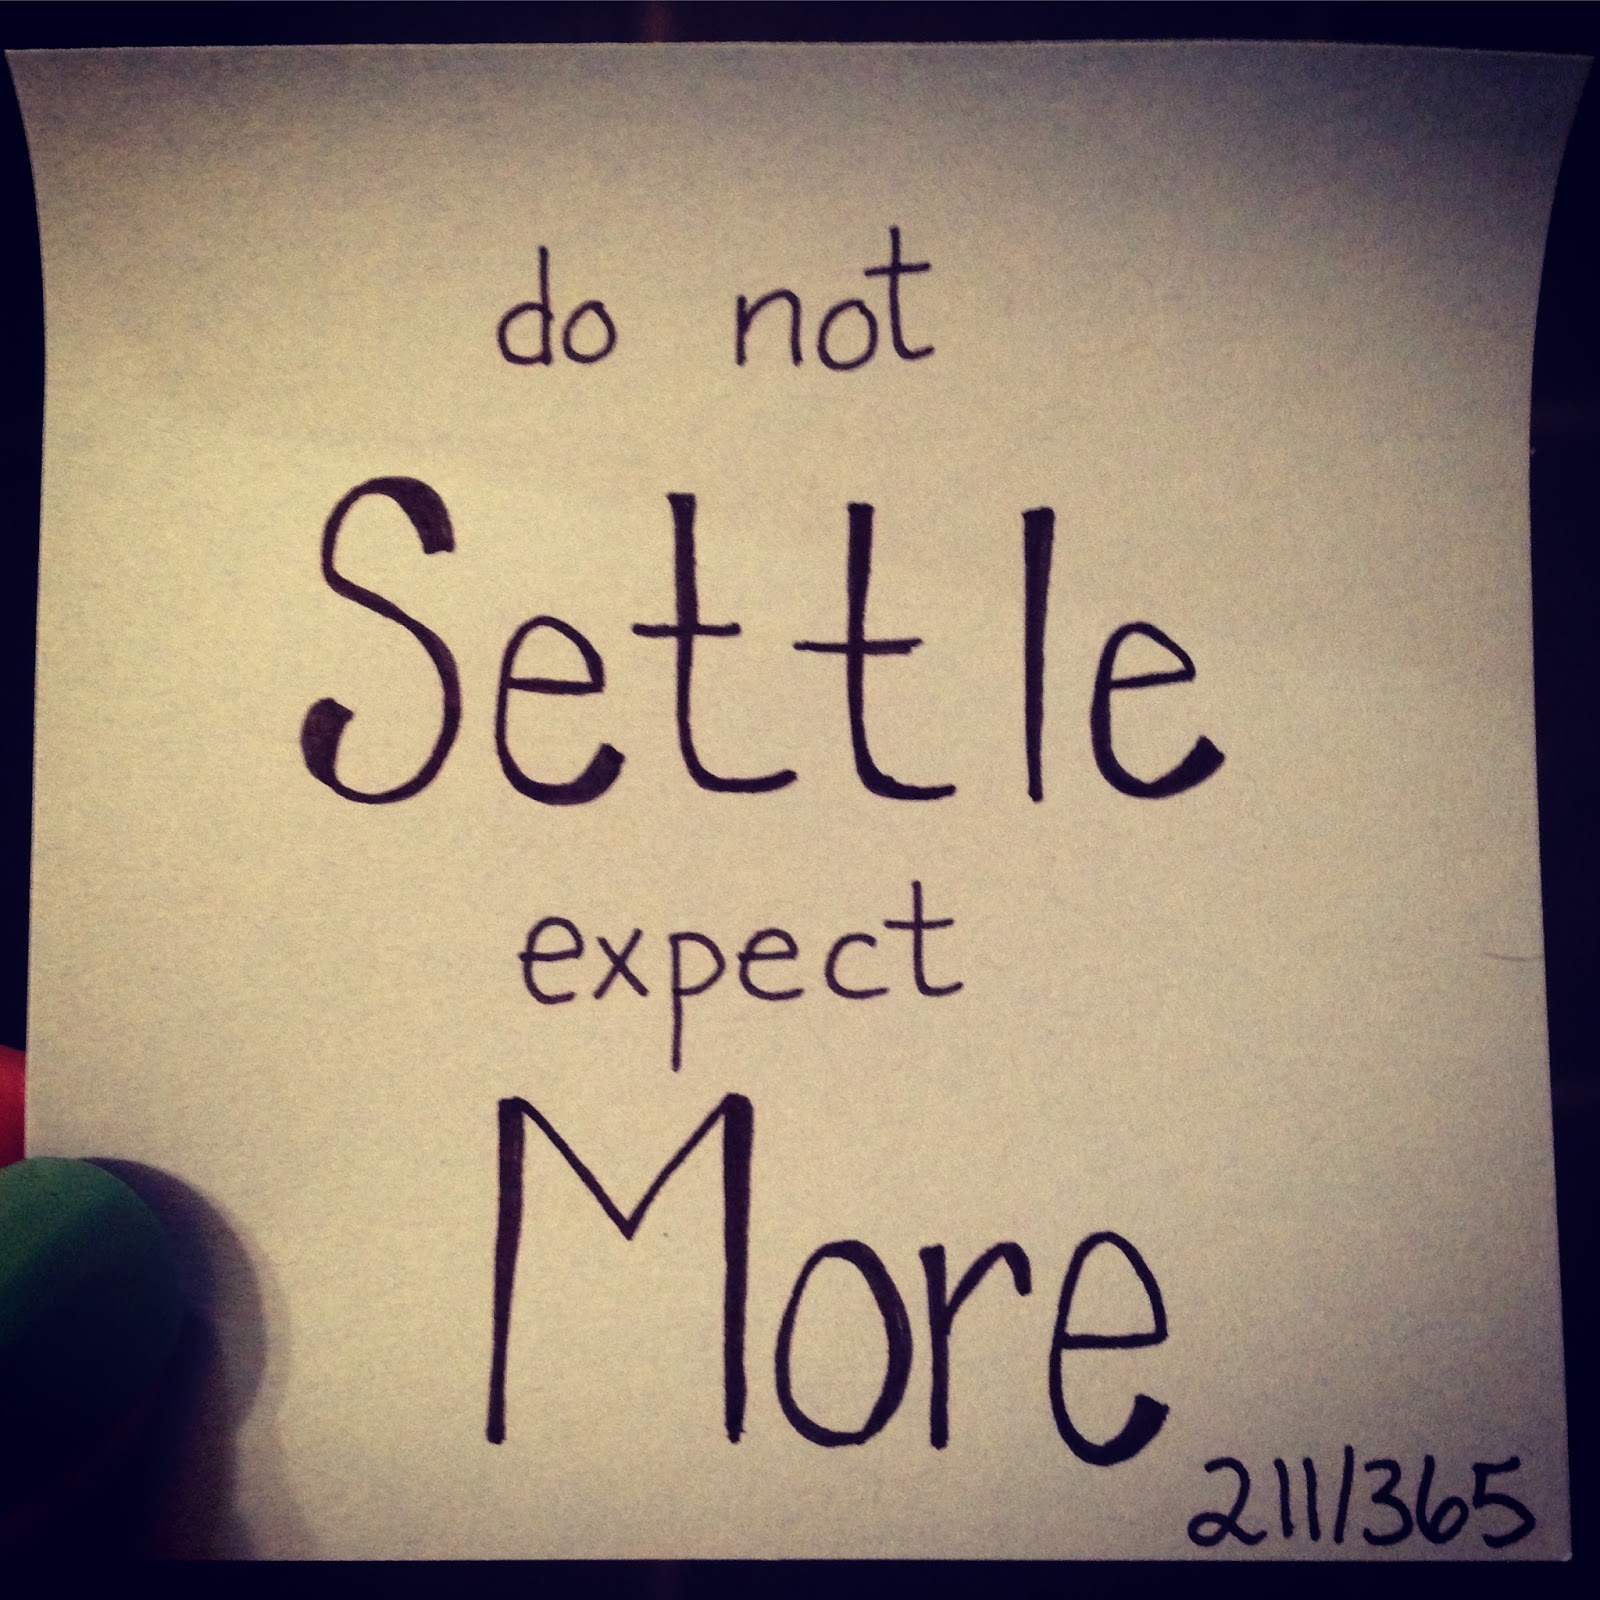 do not
Settle
expect
More
211/365